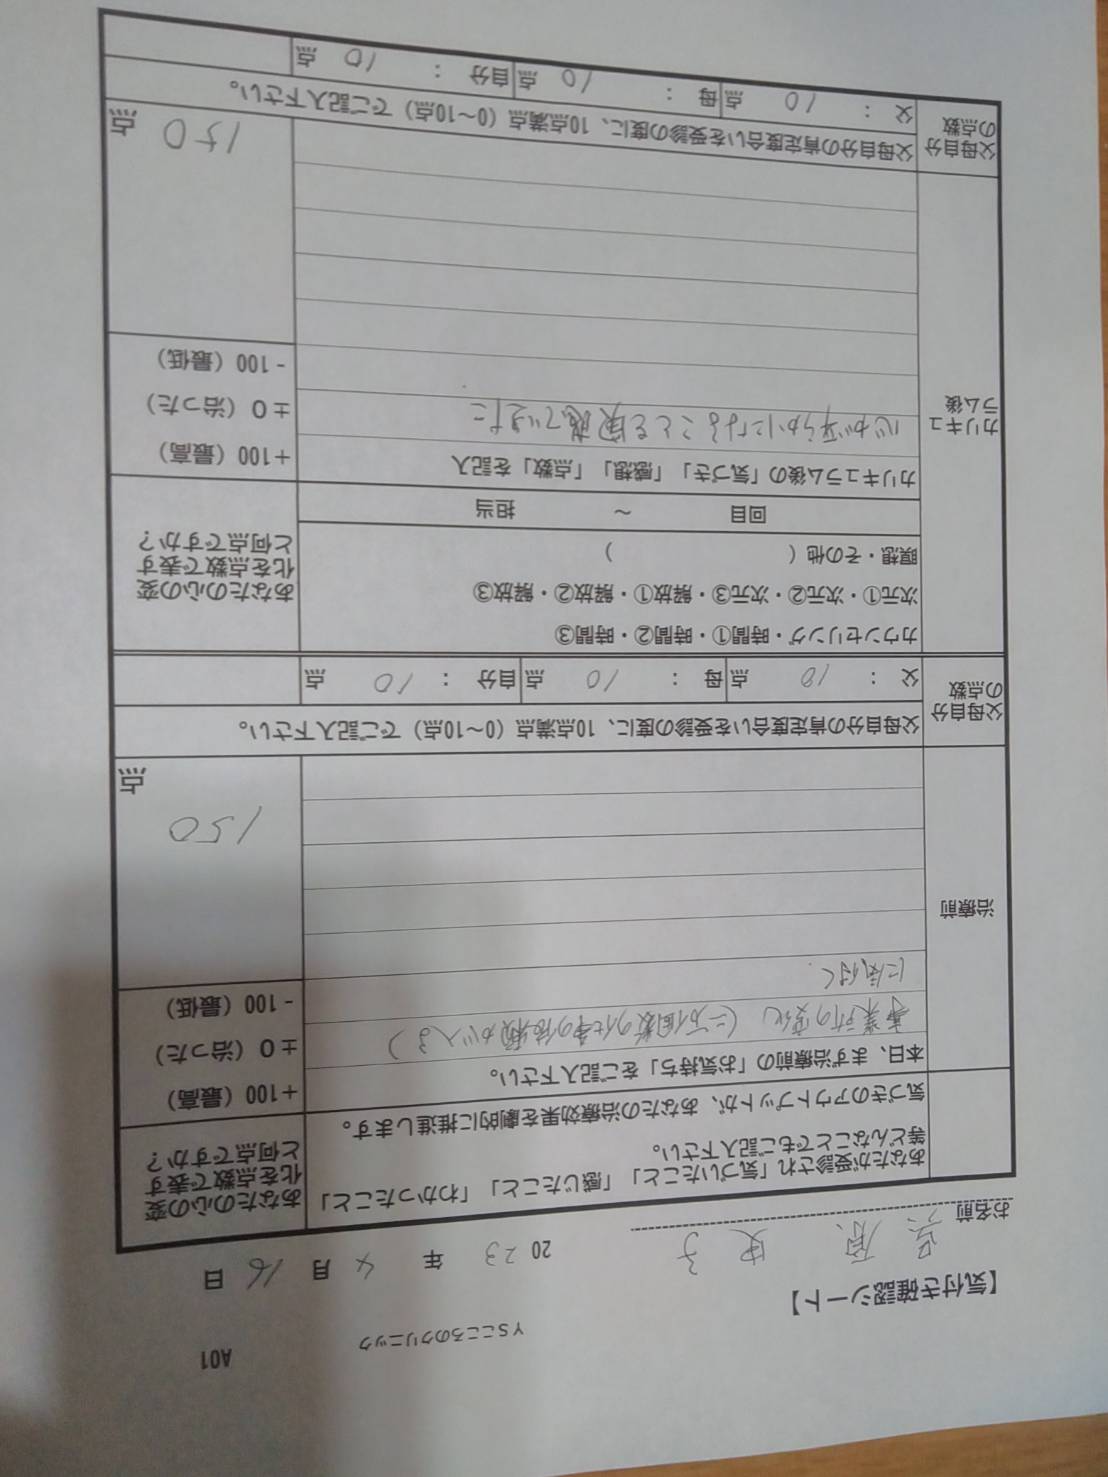 A01
YSこころのクリニック
【気付き確認シート】
お名前 原 史子 2023 年 4 月 16 日
あなたが受診され「気づいたこと」「感じたこと」「わかったこと」
等どんなことでもご記入下さい。
気づきのアウトプットが、あなたの治療効果を劇的に推進します。
あなたの心の変
化を点数で表す
と何点ですか?
治療前
本日、まず治療前の「お気持ち」をご記入下さい。
事業所の変化(二万個数の仕事の依頼が入る)
に気付く.
+100(最高)
±0(治った)
-100(最低)
150
点
父母自分
の点数
父母自分の肯定度合いを受診の度に、10点満点(0~10点)でご記入下さい。
父 : 10 点 母 : 10 点 自分 : 10 点
カウンセリング・時間①・時間②・時間③
次元①・次元②・次元③・解放①・解放②・解放③
瞑想・その他( )
回目 ~ 担当
あなたの心の変
化を点数で表す
と何点ですか?
カリキュ
ラム後
カリキュラム後の「気づき」「感想」「点数」を記入
心が平らかになることを実感できました
+100(最高)
±0(治った)
-100(最低)
150
点
父母自分
の点数
父母自分の肯定度合いを受診の度に、10点満点(0~10点)でご記入下さい。
父 : 10 点 母 : 10 点 自分 : 10 点